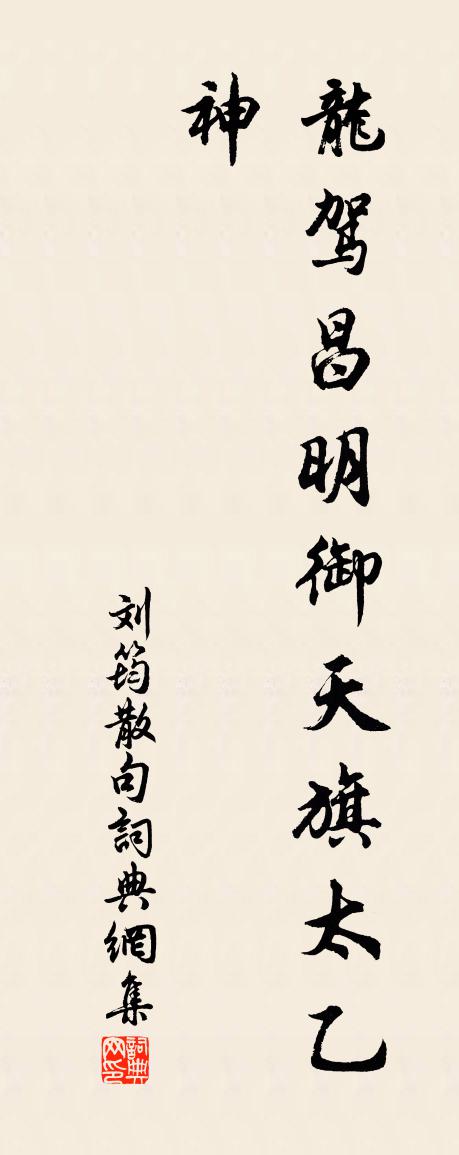 龍駕昌明御天旗太乙
神
刘筠散句詞典網集
詞典網印